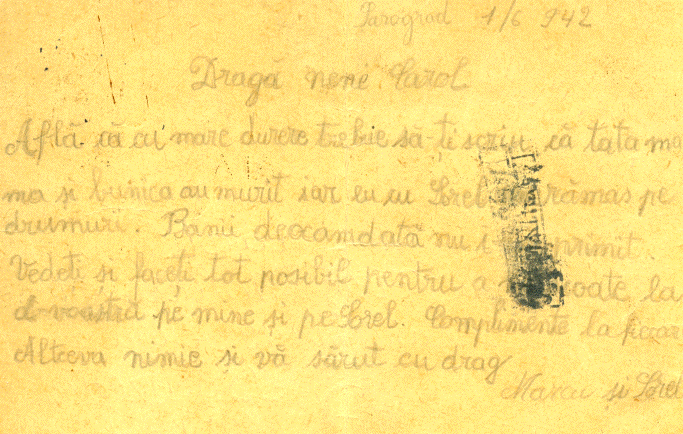 Parograd 1/6 942
Dragă nene Carol
Află că cu mare durere trebuie să-ți scriu că tata ma
ma și bunica au murit iar eu cu Lorel rămas pe
drumuri. Banii deocamdată nu i primit.
Vedeți și faceți tot posibil pentru a scoate la
d-voastră pe mine și pe Lorel. Complimente la fiecar
Altceva nimic și vă sărut cu drag
Marcu și Lorel